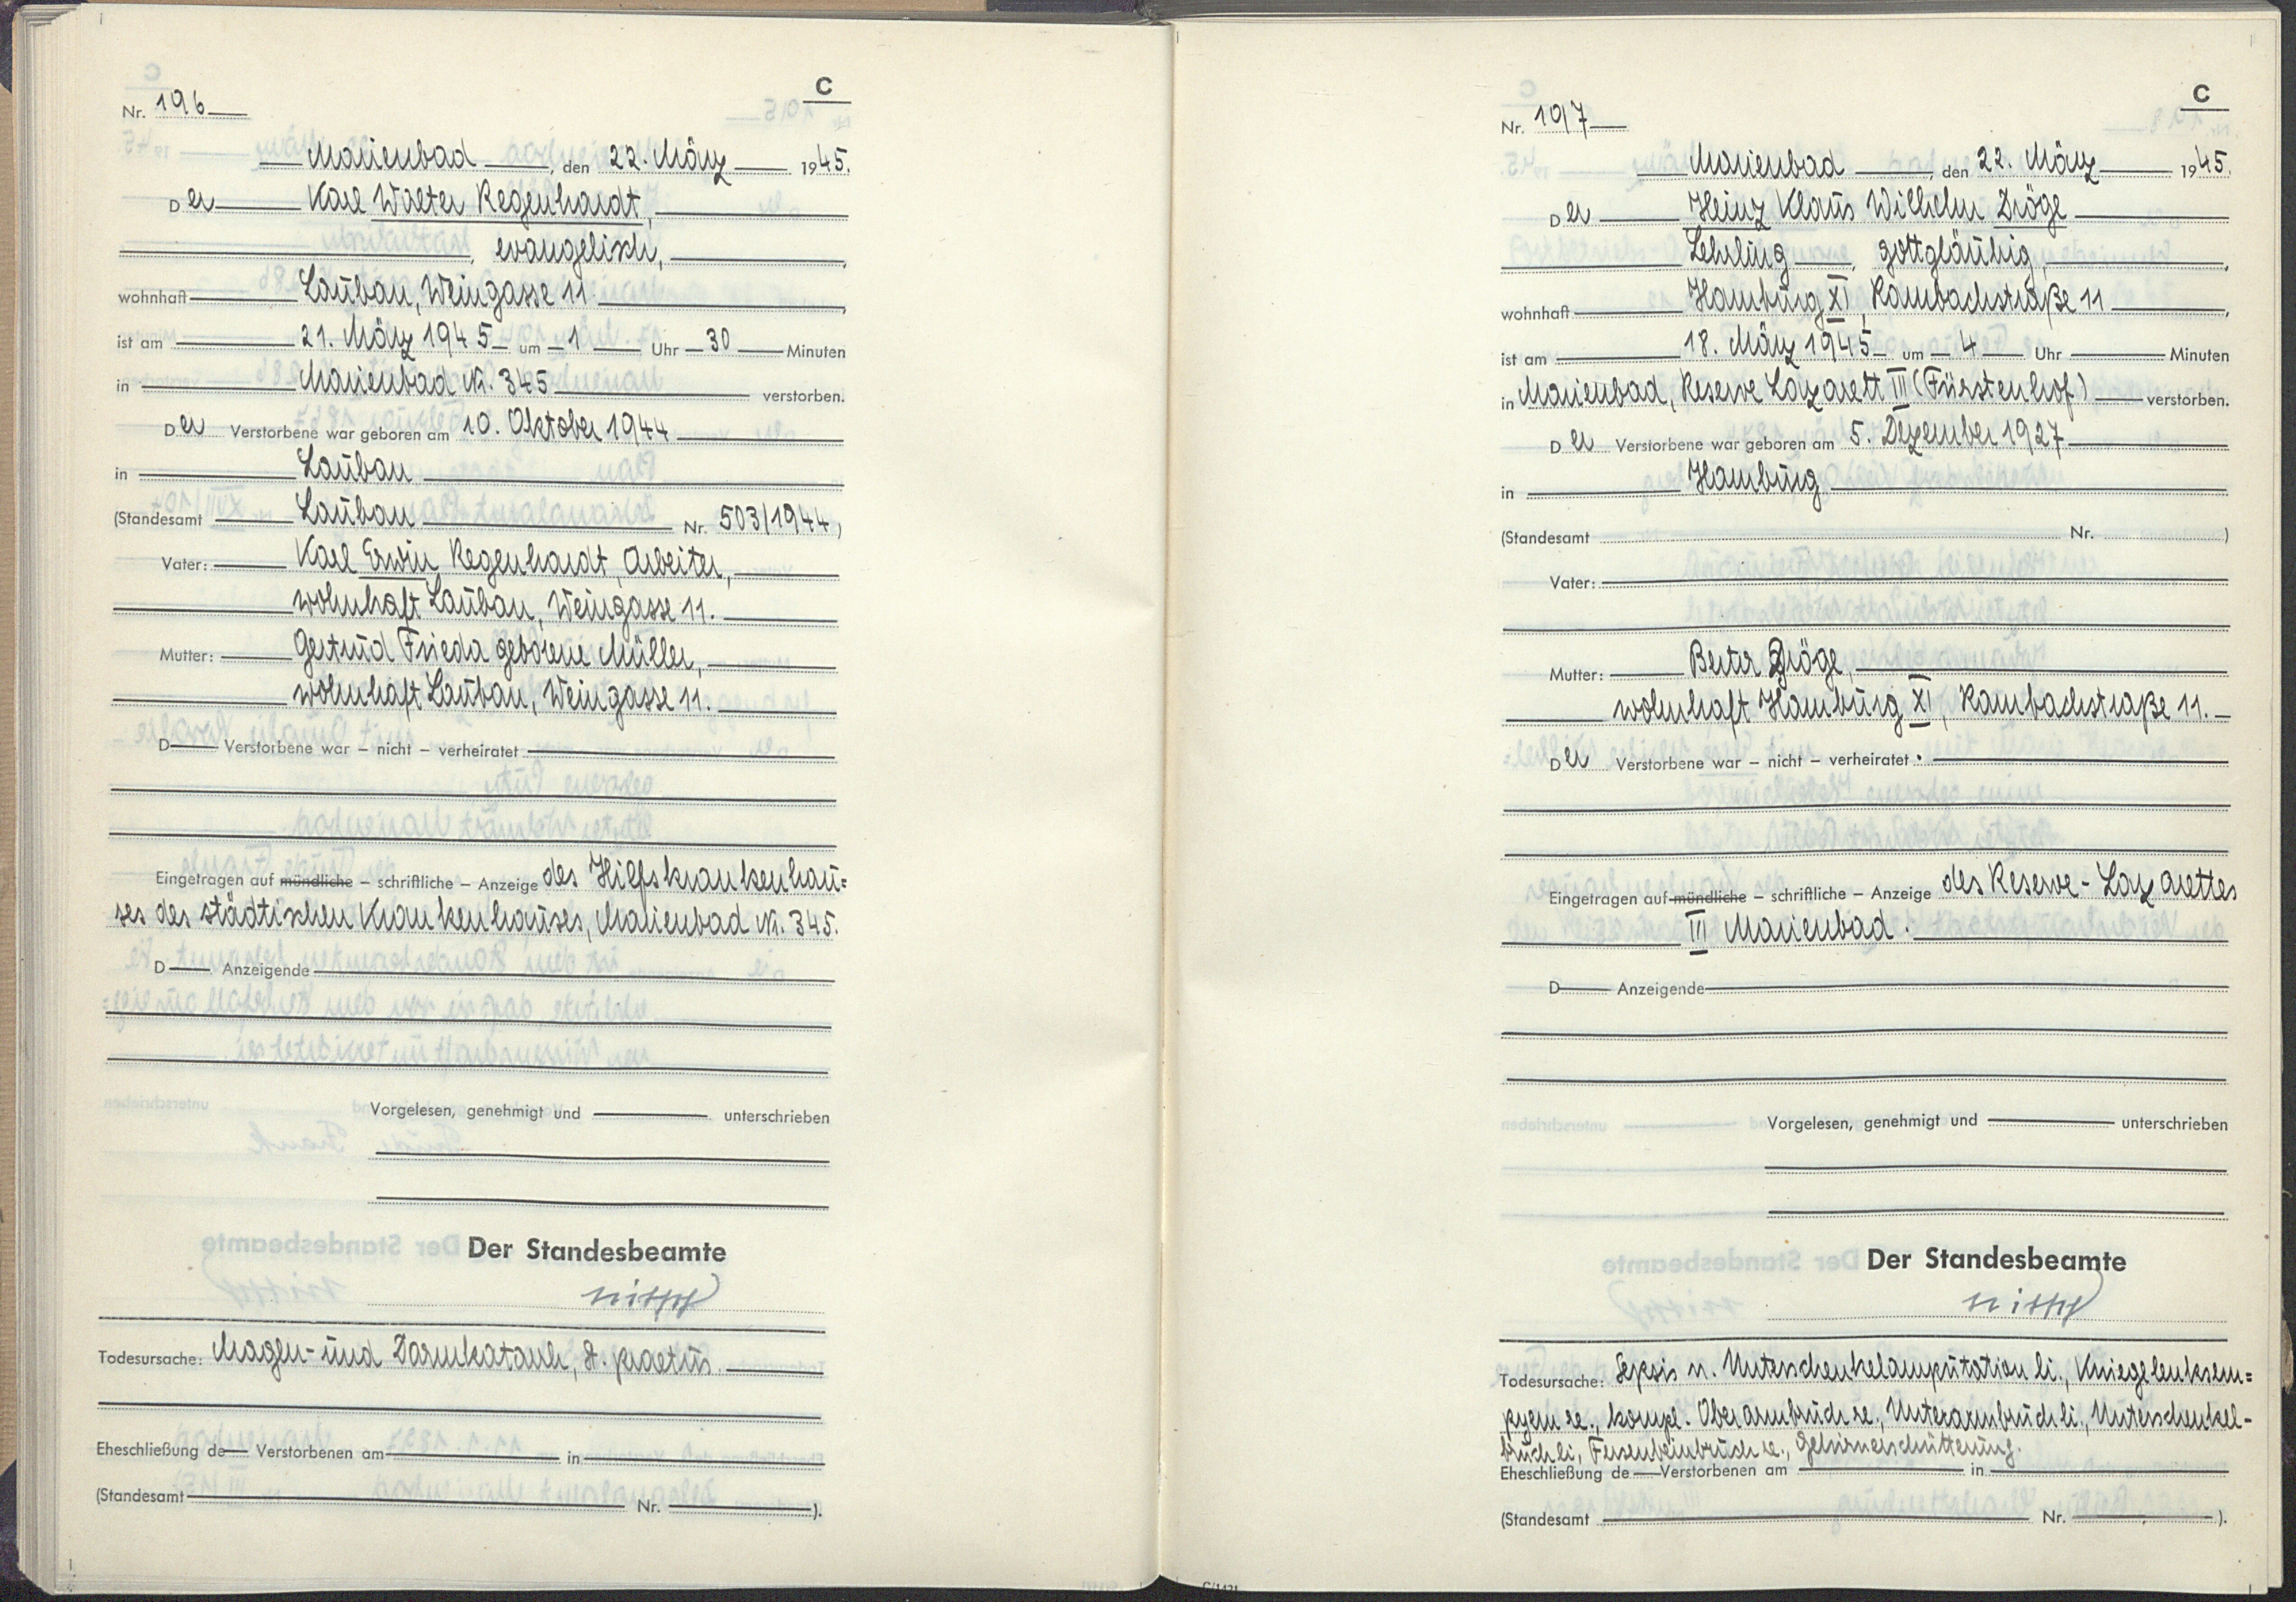 C
Nr. 196
Marienbad, den 22. März 1945.
Der Karl Walter Regenhardt,
, evangelisch,
wohnhaft Lauban, Weingasse 11.
ist am 21. März 1945 um 1 Uhr 30 Minuten
in Marienbad Nr. 345 verstorben.
Der Verstorbene war geboren am 10. Oktober 1944
in Lauban
(Standesamt Lauban Nr. 503/1944)
Vater: Karl Erwin Regenhardt, Arbeiter,
wohnhaft Lauban, Weingasse 11.
Mutter: Gertrud Frieda geborene Müller,
wohnhaft Lauban, Weingasse 11.
D Verstorbene war – nicht – verheiratet
Eingetragen auf mündliche – schriftliche – Anzeige des Hilfskrankenhau=
ses des städtischen Krankenhauses, Marienbad Nr. 345.
D Anzeigende
Vorgelesen, genehmigt und unterschrieben
Der Standesbeamte
Todesursache: Magen- und Darmkatarrh,
Eheschließung de Verstorbenen am in
(Standesamt Nr. ).
C
Nr. 197
Marienbad, den 22. März 1945.
Der Heinz Klaus Wilhelm Dröge
Lehrling, gottgläubig,
wohnhaft Hamburg XI, Rambachstraße 11
ist am 18. März 1945 um 4 Uhr Minuten
in Marienbad, Reserve Lazarett III (Fürstenhof) verstorben.
Der Verstorbene war geboren am 5. Dezember 1927
in Hamburg
(Standesamt Nr. )
Vater:
Mutter: Dröge,
wohnhaft Hamburg XI, Rambachstraße 11.
Der Verstorbene war – nicht – verheiratet.
Eingetragen auf mündliche – schriftliche – Anzeige des Reserve-Lazarettes
III Marienbad.
D Anzeigende
Vorgelesen, genehmigt und unterschrieben
Der Standesbeamte
Todesursache: Sepsis n. Unterschenkelamputation li., Kniegelenksem=
pyem re., kompl. Oberarmbruch re., Unterarmbruch li., Unterschenkel-
bruch li., Fersenbeinbruch re., Gehirnerschütterung.
Eheschließung de Verstorbenen am in
(Standesamt Nr. ).